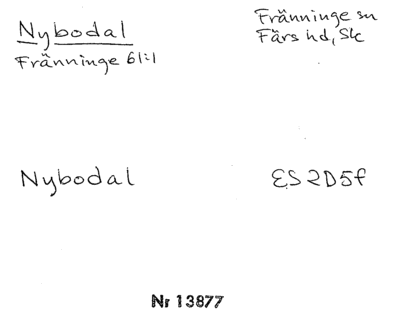 Nybodal
Fränninge 61:1
Fränninge sn
Färs hd, Sk
Nybodal
ES 2D5f
Nr 13877